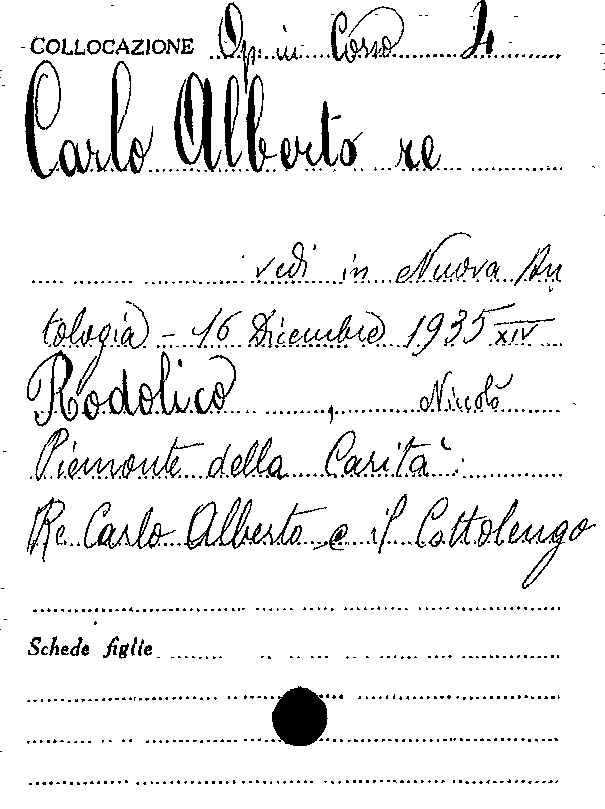 COLLOCAZIONE Op. in Corso 4
Carlo Alberto re
vedi in Nuova An
tologia - 16 Dicembre 1935 XIV
Rodolico, Nicolò
Piemonte della Carità:
Re Carlo Alberto e il Cottolengo
Schede figlie